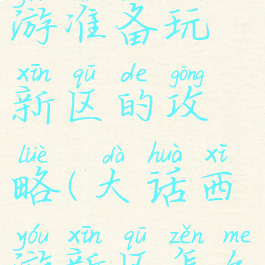 游准备玩
xīn qū de gōng
新区的攻
lüè dà huà xī
略(大话西
yóu xīn qū zěn me
游新区怎么